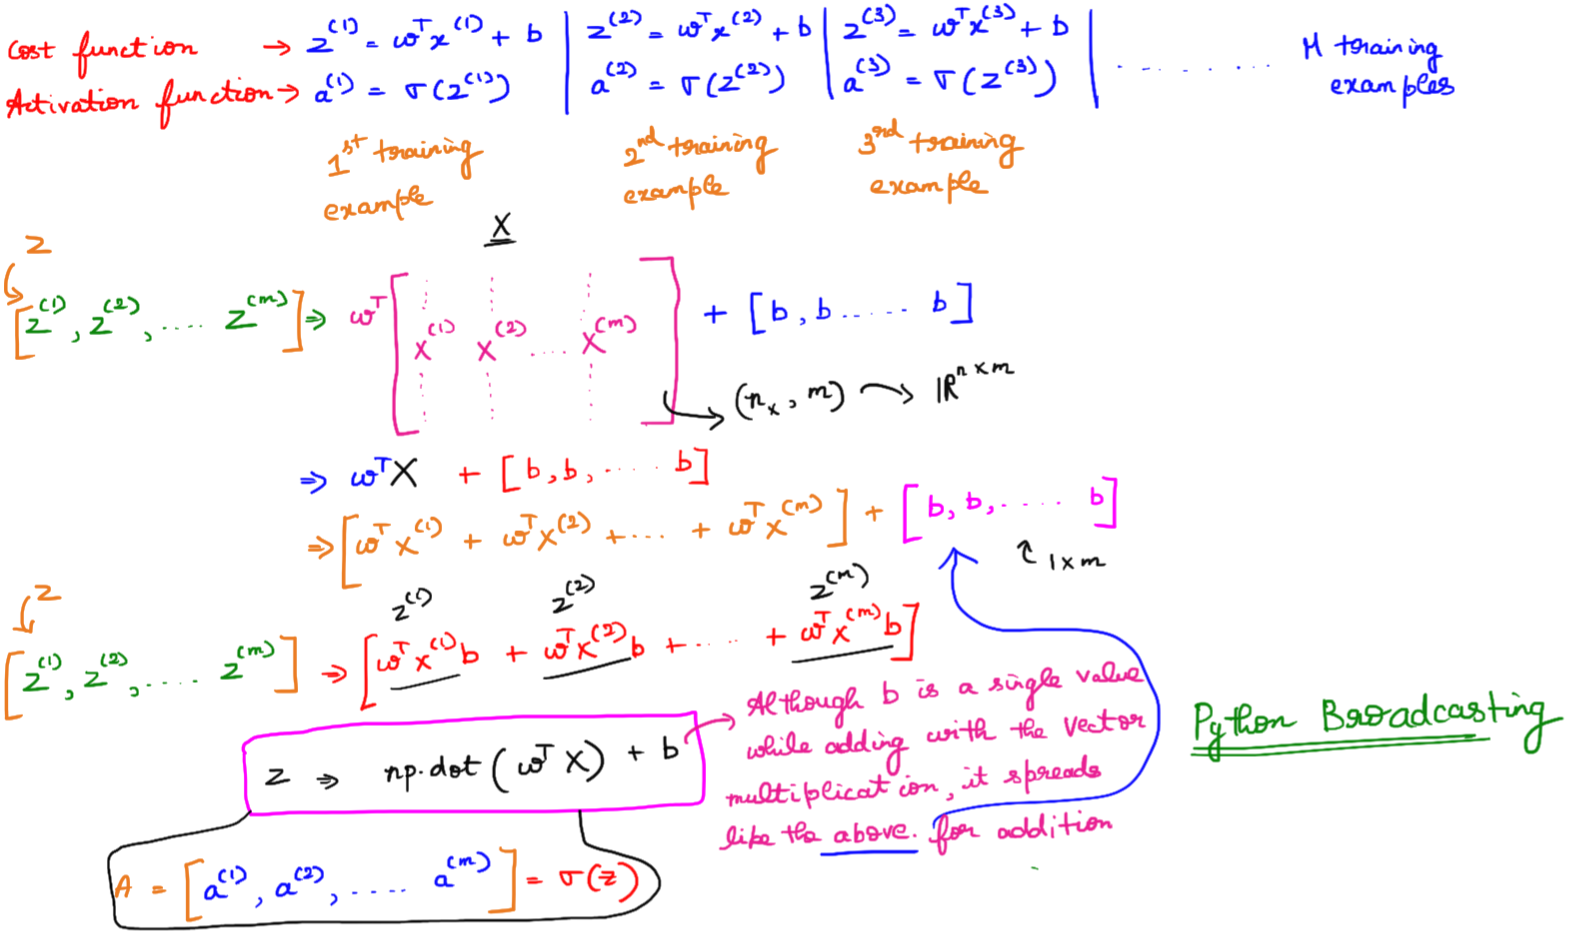 Cost function → z⁽¹⁾ = wᵀx⁽¹⁾ + b | z⁽²⁾ = wᵀx⁽²⁾ + b | z⁽³⁾ = wᵀx⁽³⁾ + b | ........ M training examples
Activation function → a⁽¹⁾ = σ(z⁽¹⁾) | a⁽²⁾ = σ(z⁽²⁾) | a⁽³⁾ = σ(z⁽³⁾) |
1st training example
2nd training example
3rd training example
X
Z
[z⁽¹⁾, z⁽²⁾, .... z⁽ᵐ⁾] ⇒ wᵀ [x⁽¹⁾ x⁽²⁾ .... x⁽ᵐ⁾] + [b, b ..... b]
(nₓ, m) → ℝⁿˣᵐ
⇒ wᵀX + [b, b, ..... b]
⇒ [wᵀx⁽¹⁾ + wᵀx⁽²⁾ + .... + wᵀx⁽ᵐ⁾] + [b, b, ..... b]
1×m
Z
z⁽¹⁾ z⁽²⁾ z⁽ᵐ⁾
[z⁽¹⁾, z⁽²⁾, ..... z⁽ᵐ⁾] ⇒ [wᵀx⁽¹⁾b + wᵀx⁽²⁾b + ..... + wᵀx⁽ᵐ⁾b]
z ⇒ np.dot(wᵀX) + b
Although b is a single value
while adding with the vector
multiplication, it spreads
like the above. for addition
Python Broadcasting
A = [a⁽¹⁾, a⁽²⁾, ..... a⁽ᵐ⁾] = σ(z)